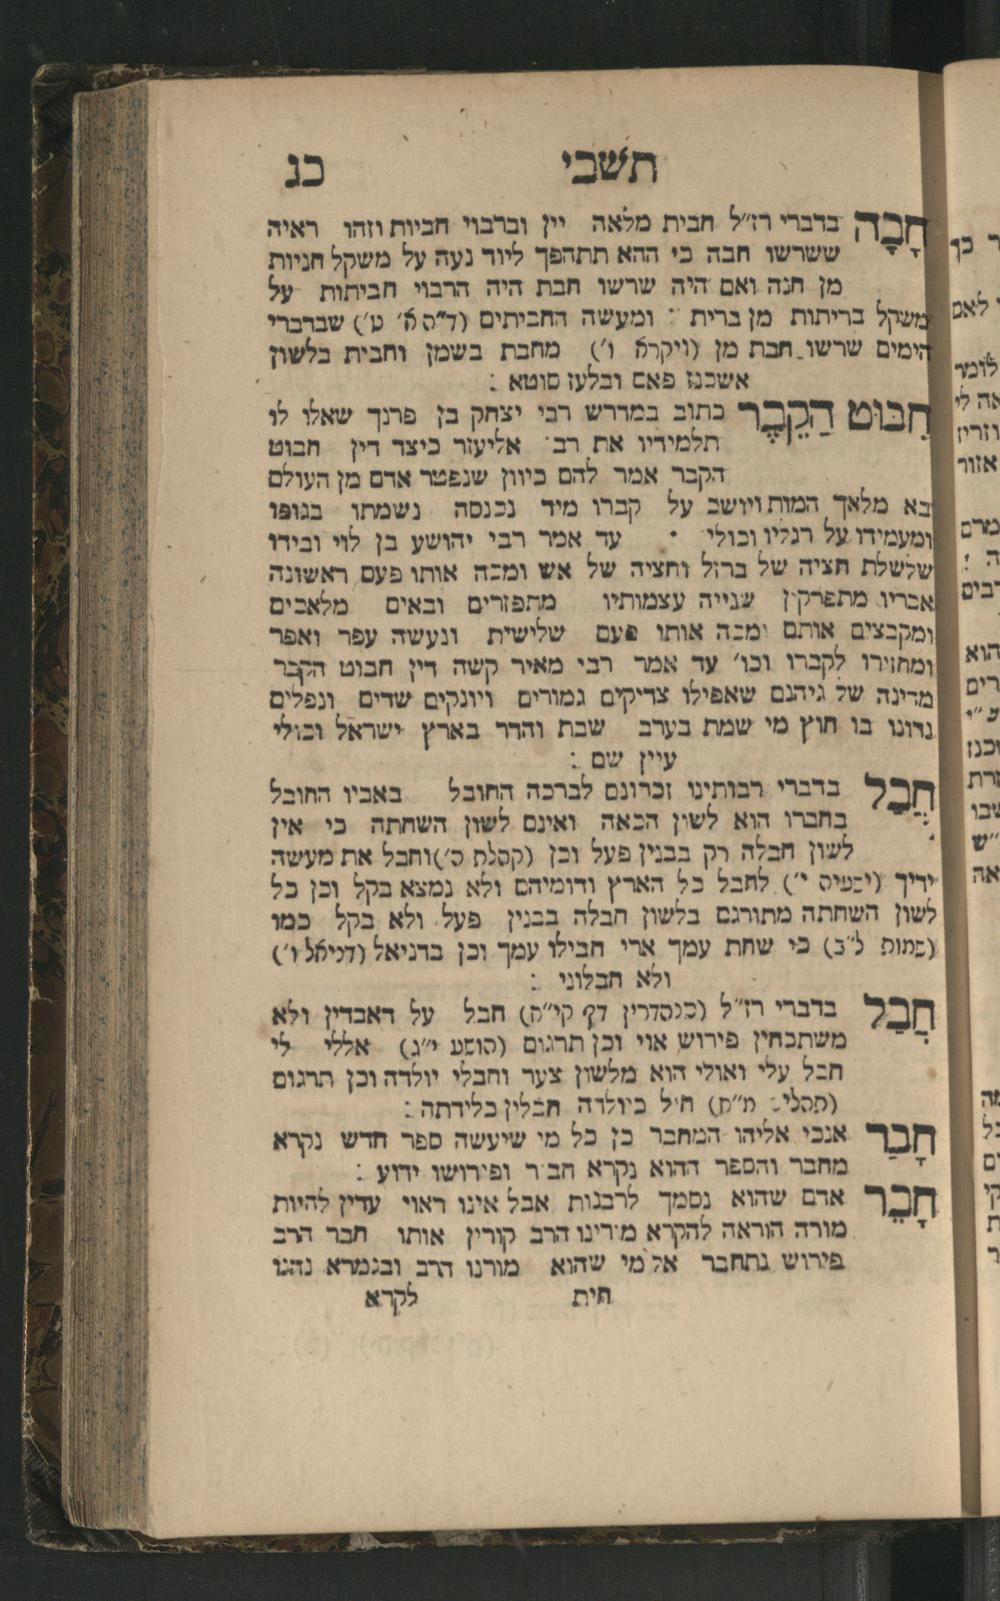 תשבי כג
חָבָה בדברי רז״ל חבית מלאה יין וברבוי חביות וזהו ראיה
ששרשו חבה כי ההא תתהפך ליוד נעה על משקל חניות
מן חנה ואם היה שרשו חבת היה הרבוי חביתות על
משקל בריתות מן ברית : ומעשה החביתים (ד״ה א׳ ט׳) שבדברי
הימים שרשו חבת מן (ויקרא ו׳) מחבת בשמן וחבית בלשון
אשכנז פאס ובלעז סוטא :
חִבּוּט הַקֵבֶר כתוב במדרש רבי יצחק בן פרנך שאלו לו
תלמידיו את רב׳ אליעזר כיצד דין חבוט
הקבר אמר להם כיוון שנפטר אדם מן העולם
בא מלאך המות ויושב על קברו מיד נכנסה נשמתו בגופו
ומעמידו על רגליו וכולי • עד אמר רבי יהושע בן לוי ובידו
שלשלת חציה של ברזל וחציה של אש ומכה אותו פעם ראשונה
אבריו מתפרקין שנייה עצמותיו מתפזרים ובאים מלאכים
ומקבצים אותם ומכה אותו פעם שלישית ונעשה עפר ואפר
ומחזירו לקברו וכו׳ עד אמר רבי מאיר קשה דין חבוט הקבר
מדינה של גיהנם שאפילו צדיקים גמורים ויונקים שדים ונפלים
נדונו בו חוץ מי שמת בערב שבת והדר בארץ ישראל וכולי
עיין שם :
חֲבַל בדברי רבותינו זכרונם לברכה החובל באביו החובל
בחברו הוא לשון הכאה ואינם לשון השחתה כי אין
לשון חבלה רק בבנין פעל וכן (קהלת ה׳) וחבל את מעשה
ידיך (ישעיה י׳) לחבל כל הארץ ודומיהם ולא נמצא בקל וכן כל
לשון השחתה מתורגם בלשון חבלה בבנין פעל ולא בקל כמו
(שמות ל״ב) כי שחת עמך ארי חבילו עמך וכן בדניאל (דניאל ו׳)
ולא חבלוני :
חֲבַל בדברי רז״ל (סנהדרין דף קי״ח) חבל על דאבדין ולא
משתכחין פירוש אוי וכן תרגום (הושע י״ג) אללי לי
חבל עלי ואולי הוא מלשון צער וחבלי יולדה וכן תרגום
(תהלים מ״ח) חיל כיולדה חבלין כלידתה :
חָבַר אנכי אליהו המחבר כן כל מי שיעשה ספר חדש נקרא
מחבר והספר ההוא נקרא חבור ופירושו ידוע :
חָבֵר אדם שהוא נסמך לרבנות אבל אינו ראוי עדין להיות
מורה הוראה להקרא מורינו הרב קורין אותו חבר הרב
פירוש נתחבר אל מי שהוא מורנו הרב ובגמרא נהגו
חית לקרא